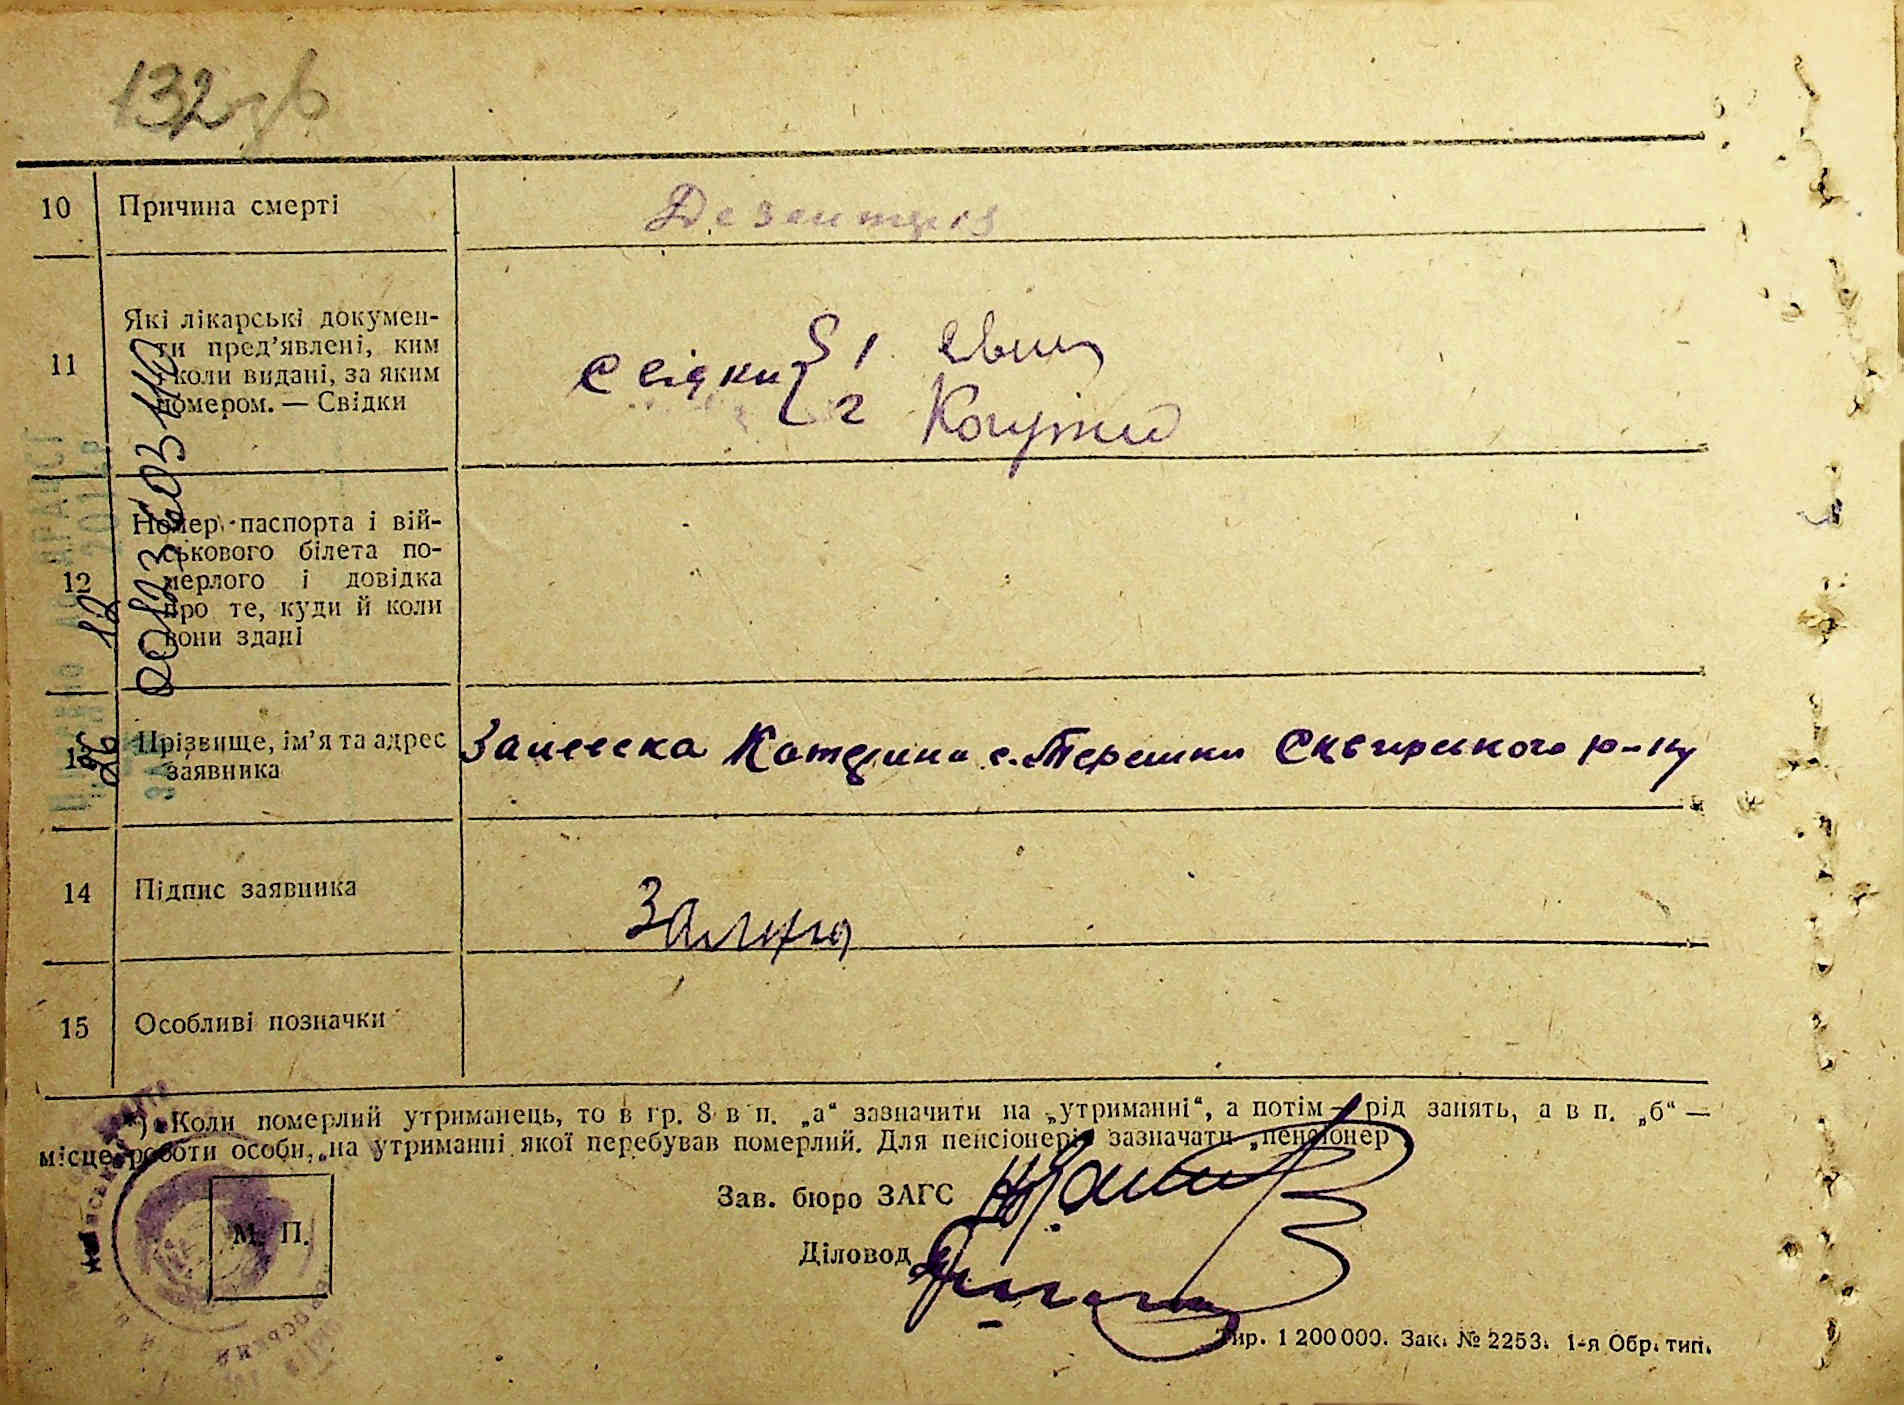 132зв
10 Причина смерті Дезентерія
11 Які лікарські докумен-
ти пред'явлені, ким
і коли видані, за яким
номером. — Свідки
Свідки { 1
2
12 Номер паспорта і вій-
ськового білета по-
мерлого і довідка
про те, куди й коли
вони здані
13 Прізвище, ім'я та адрес
заявника
Катерина с. Терешки Сквирського р-ну
14 Підпис заявника
15 Особливі позначки
*) Коли померлий утриманець, то в гр. 8 в п. „а“ зазначити на „утриманні“, а потім — рід занять, а в п. „б“ —
місце роботи особи, на утриманні якої перебував померлий. Для пенсіонерів зазначати „пенсіонер
Зав. бюро ЗАГС
Діловод
М. П.
Тир. 1 200 000. Зак. № 2253. 1-я Обр. тип.